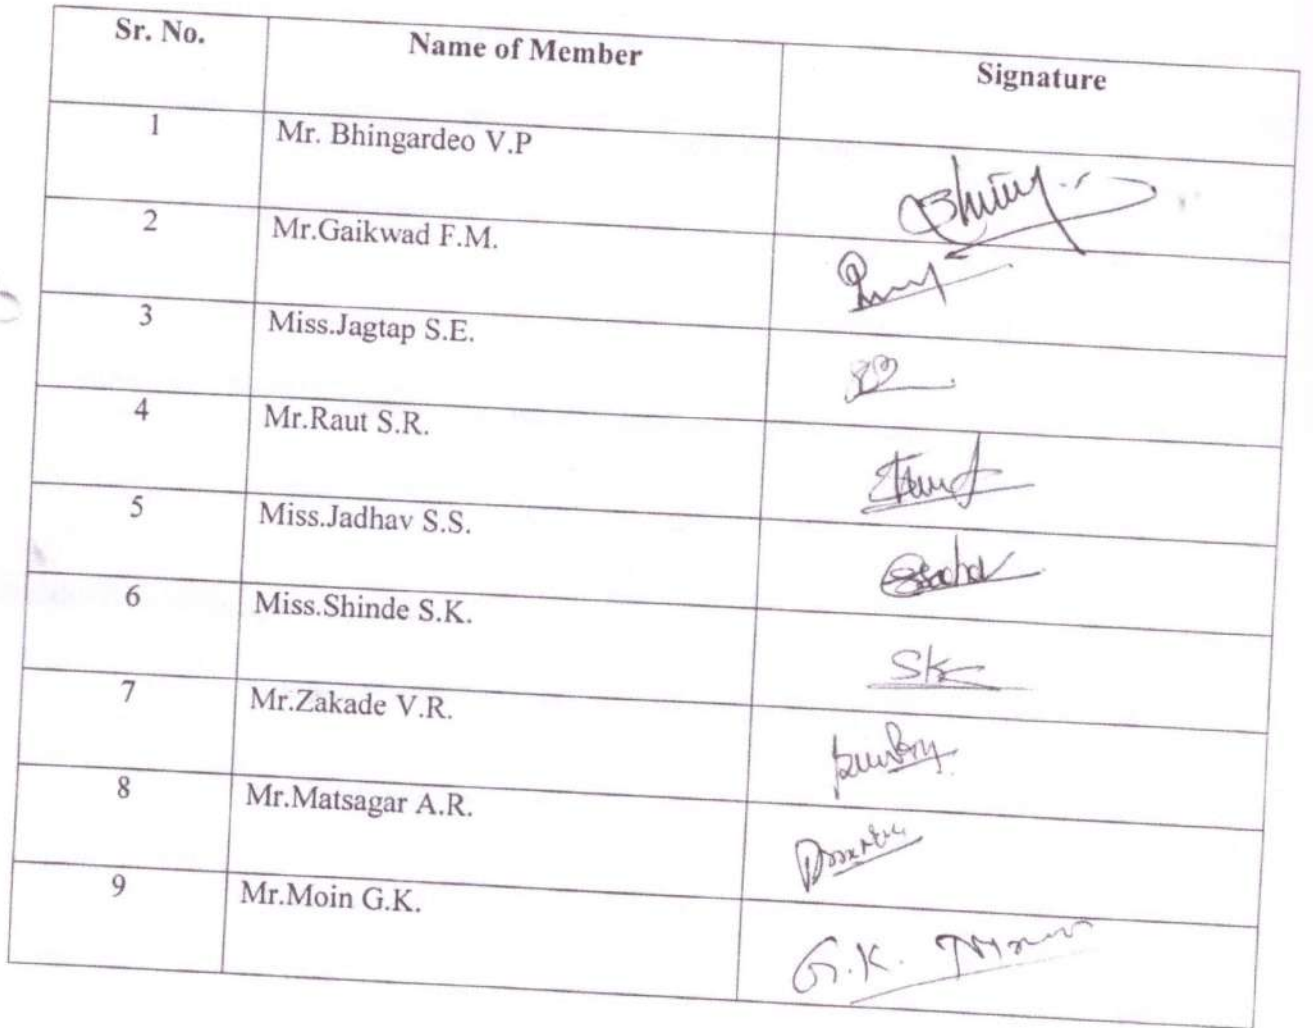 Sr. No. Name of Member Signature
1 Mr. Bhingardeo V.P
2 Mr.Gaikwad F.M.
3 Miss.Jagtap S.E.
4 Mr.Raut S.R.
5 Miss.Jadhav S.S.
6 Miss.Shinde S.K. SK
7 Mr.Zakade V.R.
8 Mr.Matsagar A.R.
9 Mr.Moin G.K. G.K.